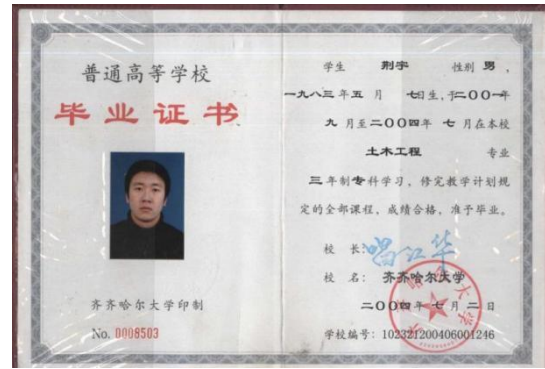 普通高等学校
毕业证书
齐齐哈尔大学印制
No. 0008503
学生 荆宇 性别 男，
一九八三年五 月 七日生，于二〇〇一年
九 月至二〇〇四年 七 月在本校
土木工程 专业
三 年制专科学习，修完教学计划规
定的全部课程，成绩合格，准予毕业。
校 长：
校 名：齐齐哈尔大学
二〇〇四年 七 月 二 日
学校编号：102321200406001246